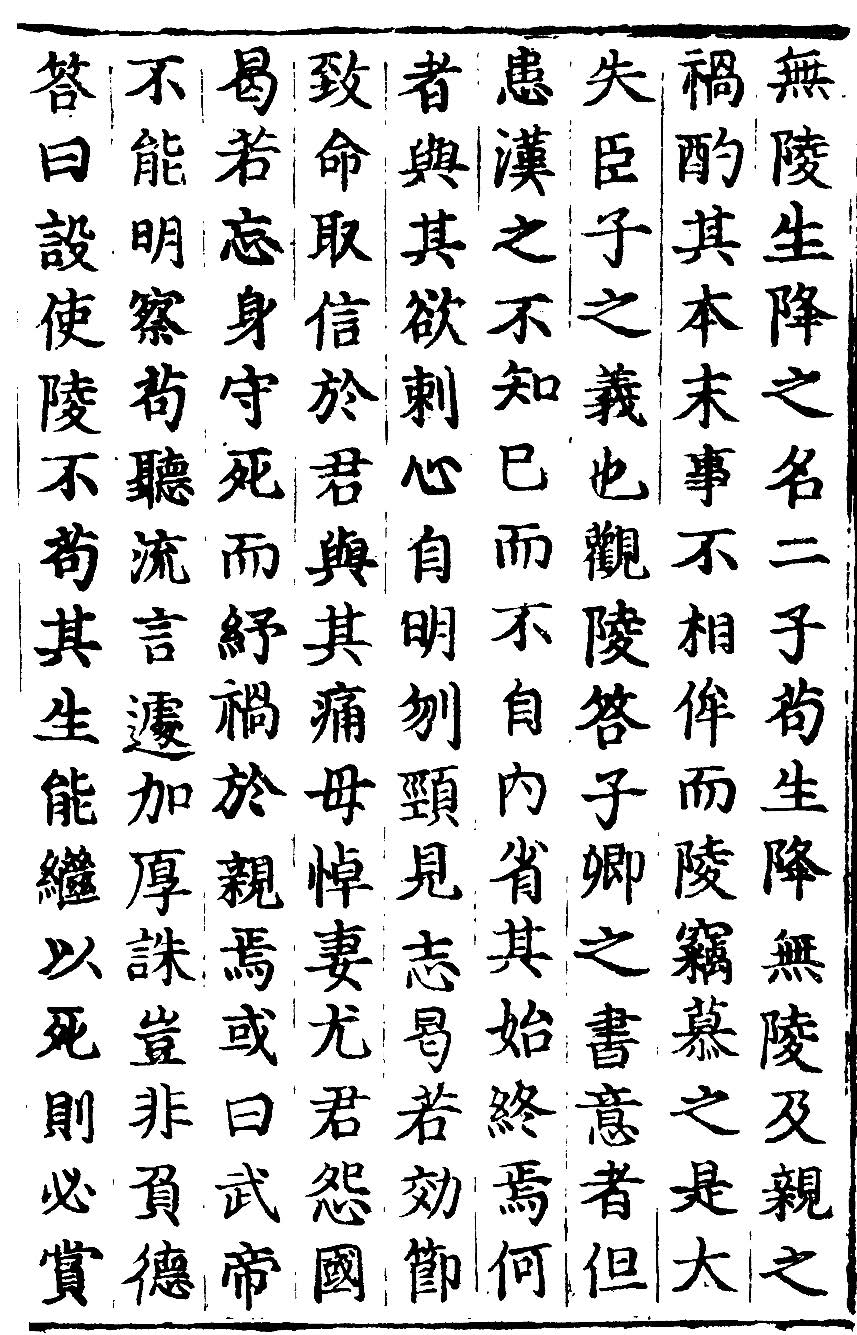 無陵生降之名二子茍生降無陵及親之
禍酌其本末事不相侔而陵竊慕之是大
失臣子之義也觀陵答子卿之書意者但
患漢之不知已而不自內省其始終焉何
者與其欲刺心自明刎頸見志曷若效節
致命取信於君與其痛母悼妻尤君怨國
曷若忘身守死而紓禍於親焉或曰武帝
不能明察茍聽流言遽加厚誅豈非負德
答曰設使陵不茍其生能繼以死則必賞